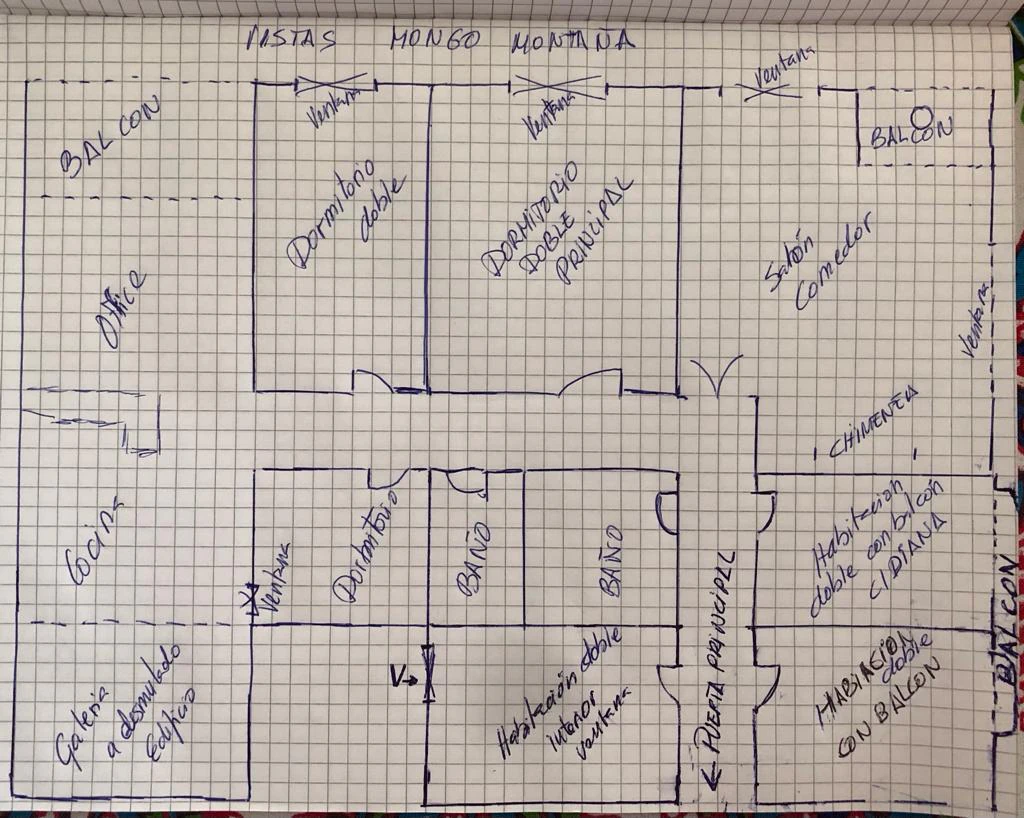 VISTAS MONGO MONTAÑA
BALCON
Ventana
Ventana
Ventana
BALCON
Dormitorio
doble
DORMITORIO
DOBLE
PRINCIPAL
Salón
Comedor
Ventana
Office
CHIMENEA
Cocina
Ventana
Dormitorio
BAÑO
BAÑO
Habitacion
doble con balcon
C/DIANA
BALCON
Galeria
a
Edificio
V→
Habitación doble
interior
ventana
← PUERTA PRINCIPAL
HABITACION
doble
CON BALCON